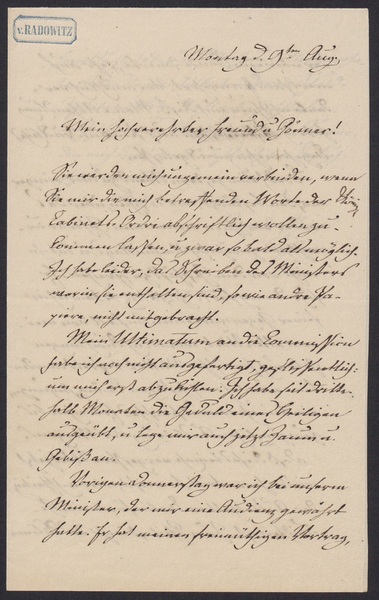 v. RADOWITZ
Montag d. 9ten Aug.
Mein hochverehrter Freund u Gönner!
Sie werden mich ungemein verbinden, wenn
Sie mir die mich betreffenden Worte der
Cabinets-Ordre abschriftlich wollen zu-
kommen lassen, u zwar so bald als möglich.
Ich habe leider, das Schreiben des Ministers
worin sie enthalten sind, sowie andre Pa-
piere, nicht mitgebracht.
Mein Ultimatum an die Commission
habe ich noch nicht ausgefertigt, geflissentlich:
um mich erst abzukühlen. Ich habe seit dritte-
halb Monaten die Geduld eines Heiligen
ausgeübt, u lege mir auch jetzt Zaum u.
Gebiß an.
Vorigen Donnerstag war ich bei unserm
Minister, der mir eine Audienz gewährt
hatte. Er hat meinen freimüthigen Vortrag,